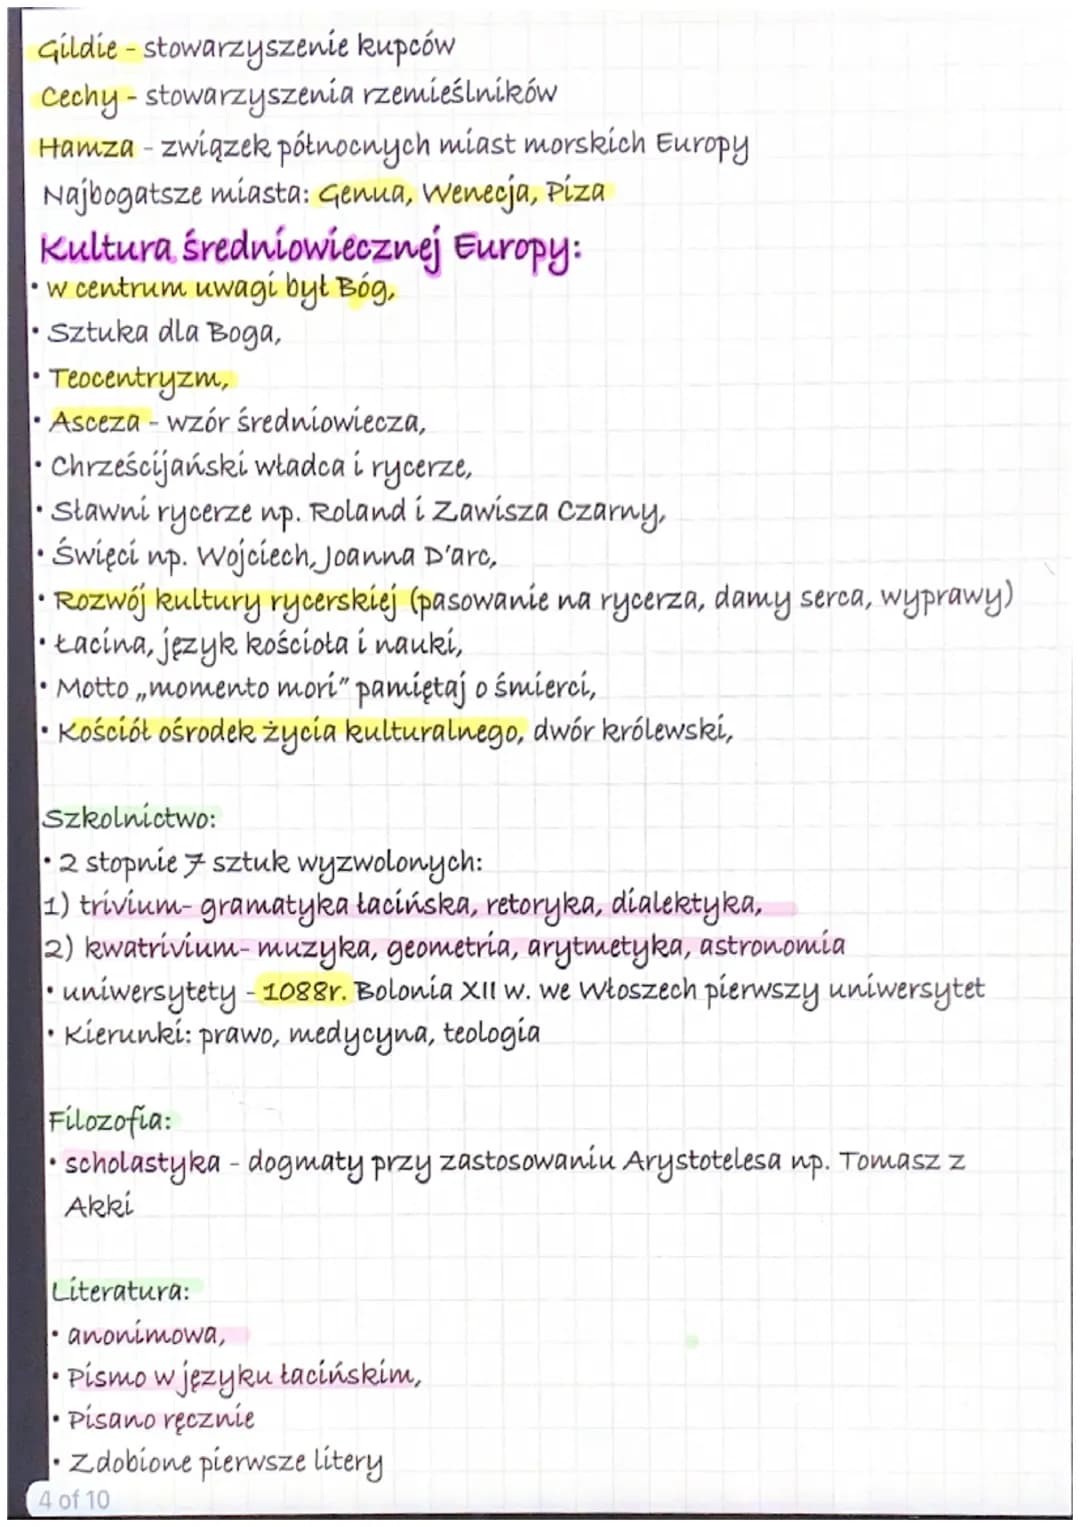 Gildie - stowarzyszenie kupców
Cechy - stowarzyszenia rzemieślników
Hamza - związek północnych miast morskich Europy
Najbogatsze miasta: Genua, Wenecja, Piza
Kultura średniowiecznej Europy:
• w centrum uwagi był Bóg,
• Sztuka dla Boga,
• Teocentryzm,
• Asceza - wzór średniowiecza,
• Chrześcijański władca i rycerze,
• Sławni rycerze np. Roland i Zawisza Czarny,
• Święci np. Wojciech, Joanna D'arc,
• Rozwój kultury rycerskiej (pasowanie na rycerza, damy serca, wyprawy)
• Łacina, język kościoła i nauki,
• Motto „momento mori" pamiętaj o śmierci,
• Kościół ośrodek życia kulturalnego, dwór królewski,
Szkolnictwo:
• 2 stopnie 7 sztuk wyzwolonych:
1) trivium- gramatyka łacińska, retoryka, dialektyka,
2) kwatrivium- muzyka, geometria, arytmetyka, astronomia
• uniwersytety - 1088r. Bolonia XII w. we Włoszech pierwszy uniwersytet
• Kierunki: prawo, medycyna, teologia
Filozofia:
• scholastyka - dogmaty przy zastosowaniu Arystotelesa np. Tomasz z
Akki
Literatura:
• anonimowa,
• Pismo w języku łacińskim,
• Pisano ręcznie
• Zdobione pierwsze litery
4 of 10